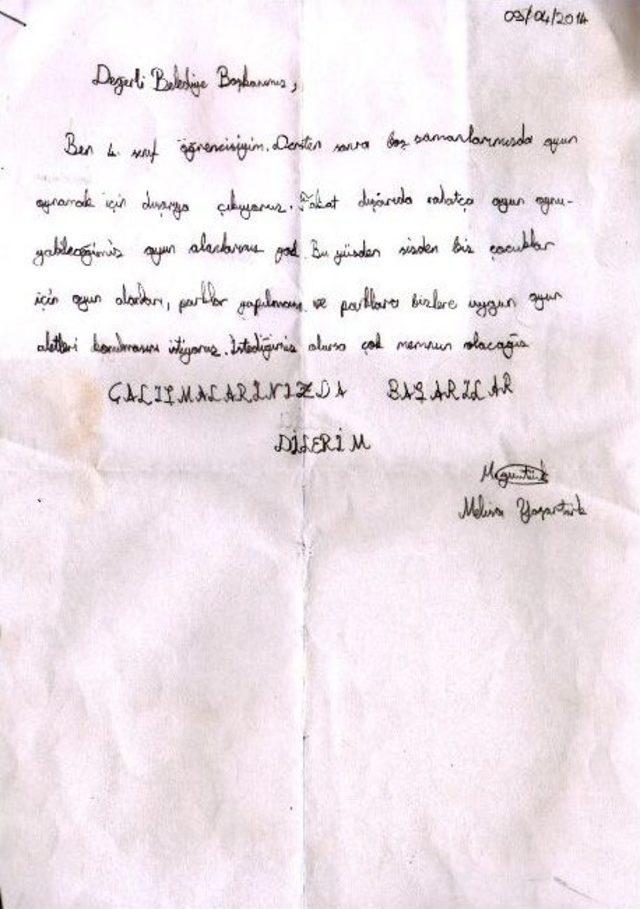 03/04/2014
Değerli Belediye Başkanımız,
Ben 4. sınıf öğrencisiyim. Dersten sonra boş zamanlarımızda oyun
oynamak için dışarıya çıkıyoruz. Fakat dışarıda rahatça oyun oynu-
yabileceğimiz oyun alanlarımız yok. Bu yüzden sizden biz çocuklar
için oyun alanları, parklar yapılmasını ve parklara bizlere uygun oyun
aletleri konulmasını istiyoruz. İstediğimiz olursa çok memnun olacağız
ÇALIŞMALARINIZDA BAŞARILAR
DİLERİM
Melisa